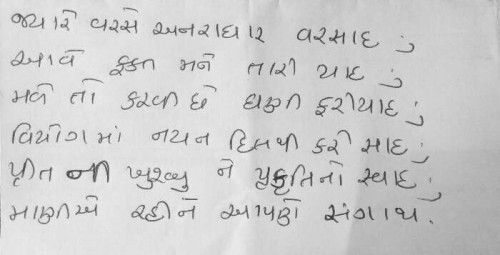 જ્યારે વરસે અનરાધાર વરસાદ ;
આવે ફક્ત મને તારી યાદ ;
મર્વે તો કરવી છે ઘણી ફરીયાદ ;
વિયોગમાં નયન દિલથી કરે સાદ ;
પ્રીત ની ખુશ્બુ ને પ્રકૃતિનો સ્વાદ ;
માણીએ રહીને આપણે સંગાથ.